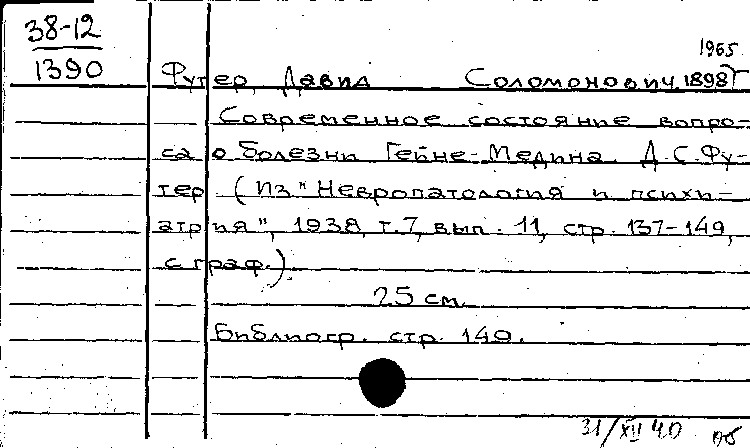 38-12
1390
1965
Футер, Давид Соломонович, 1898
Современное состояние вопро-
са о болезни Гейне-Медина. Д.С.Фу-
тер. (Из "Невропатология и психи-
атрия", 1938, т.7, вып. 11, стр. 137-149,
с граф.).
25 см.
Библиогр. стр. 149.
31/XII 40